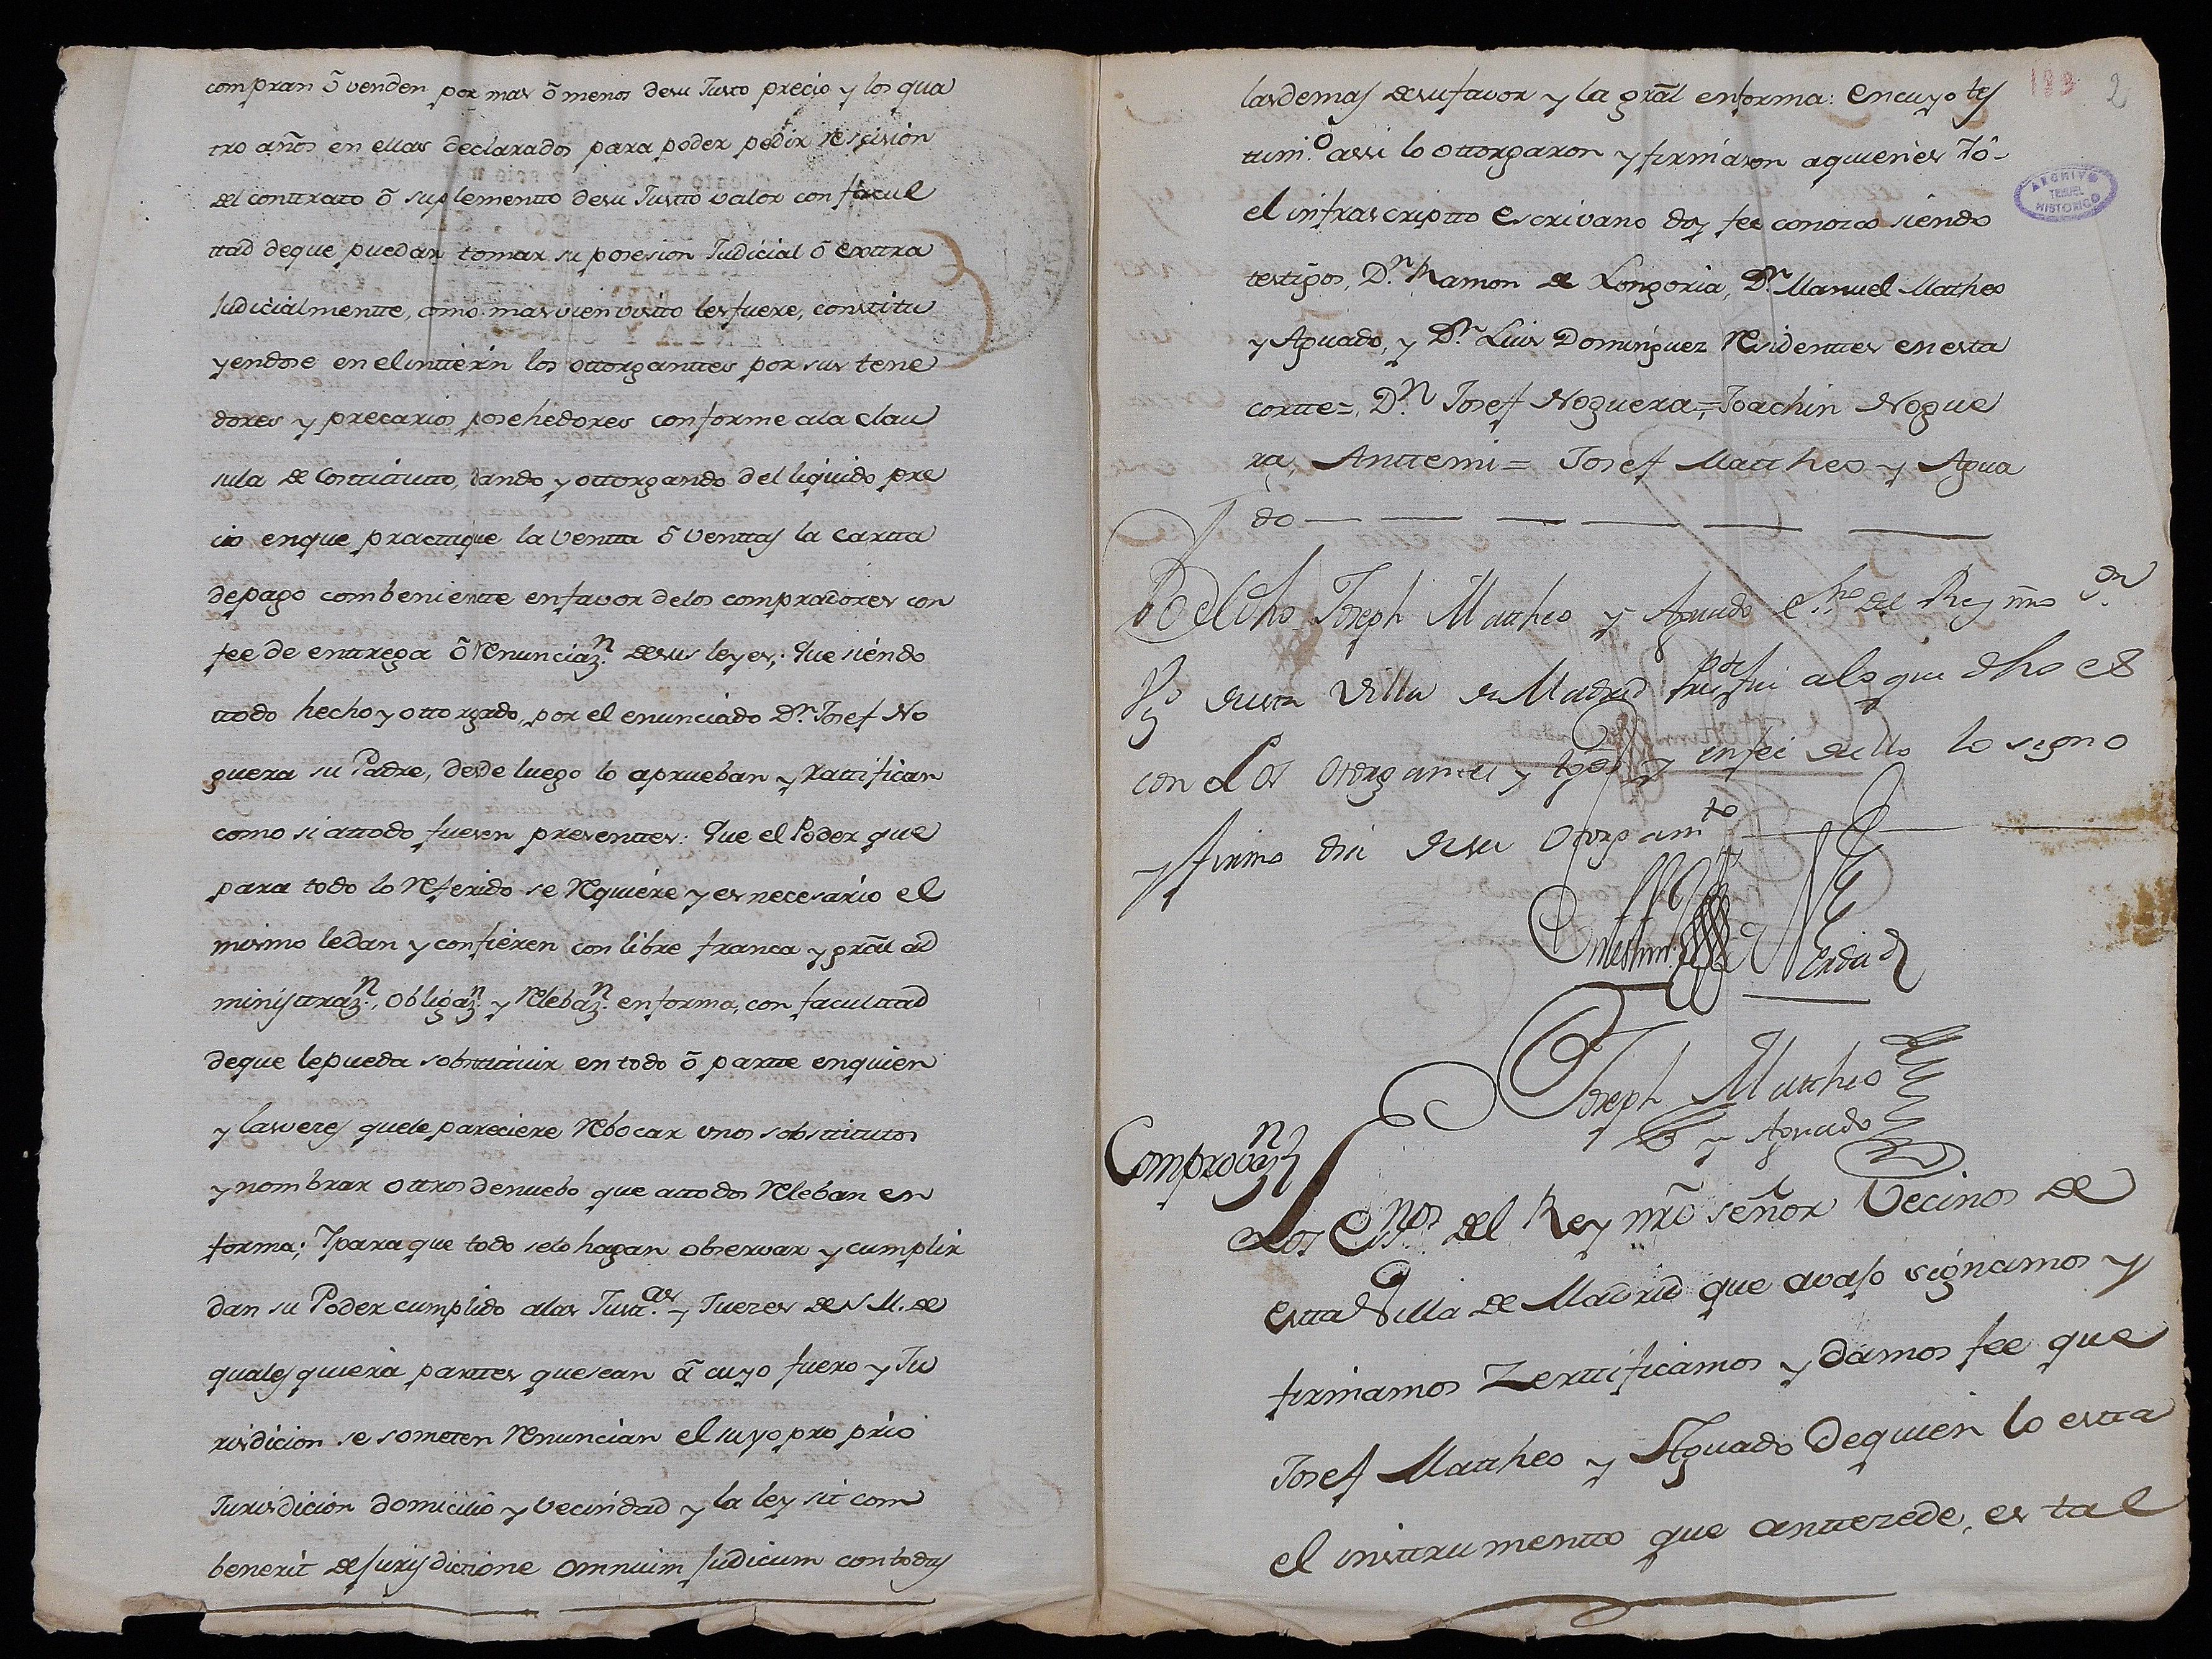 compran ô venden por mas ô menos desu Justo precio y los qua
tro años en ellas declarados para poder pedir rescision
del conttrato ô suplementto desu Justto valor con facul
ttad deque puedan tomar su posesion Judicial ô exttra
Judicialmentte, como mas vien visto les fuere, constitu
yendose en el intterin los ottorganttes por sus tene
dores y precarios posehedores conforme ala clau
sula de Constitutto, dando y ottorgando del liquido pre
cio enque practtique la Ventta ô Venttas la cartta
depago combenientte enfavor delos compradores con
fee de enttrega ô renunciaz.n desus leyes; Que siendo
ttodo hecho y ottorgado, por el enunciado D.n Josef No
guera su Padre, desde luego lo aprueban y rattifican
como si attodo fuesen presenttes: Que el Poder que
para todo lo referido se requiere y es necesario el
mismo ledan y confieren con libre franca y grâl ad
ministtraz.n, obligaz.n y relebaz.n en forma, con facultad
deque lepueda sobstituir en todo ô partte enquien
y las vezes quele pareciere rebocar unos sobstitutos
y nombrar ottros denuebo que attodos releban en
forma; Y para que todo selo hagan observar y cumplir
dan su Poder cumplido alas Justt.as y Juezes de S M. de
qualesquiera parttes que sean â cuyo fuero y Ju
risdicion se someten renuncian el suyo proprio
Jurisdicion domicilio y vecindad y la ley sit com
benerit de Jurisdictione omnium Judicum con todas
las demas desufavor y la grâl enforma: En cuyo tes
199 2
tim.o assi lo ottorgaron y firmaron aquienes Yô
ARCHIVO TERUEL HISTORICO
el infrascriptto Escrivano doy fee conozco siendo
testigos, D.n Ramon de Longoria, D.n Manuel Matheo
y Aguado, y D.n Luis Dominguez residenttes en esta
cortte=, D.n Josef Noguera=, Joachin Nogue
ra, Anttemi= Josef Mattheo y Agua
do
Yo el dho Joseph Mattheo y Aguado es.no del Rey nro S.or
V.o desta Villa de Madrid pres.te fui alo que dho es
con los Otorgantes y tgos y enfee dello lo signo
y firmo dia desu Otorgam.to
En testim.o de Verdad
Joseph Mattheo
y Aguado
Comprovaz.n
Los Es.nos del Rey nrô señor Vecinos de
estta Villa de Madrid que avajo signamos y
firmamos Zerttificamos y damos fee que
Josef Mattheo y Aguado dequien lo estta
el insttrumentto que anttezede, es tal